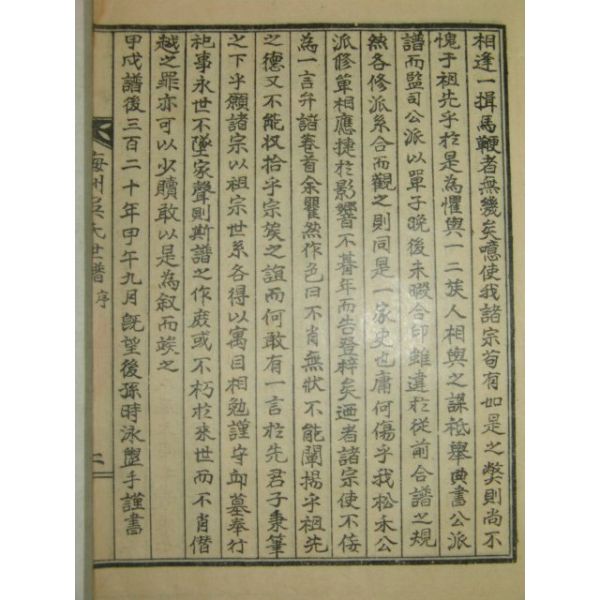 相逢一揖馬鞭者無幾矣噫使我諸宗苟有如是之弊則尚不
愧于祖先乎於是為懼與一二族人相與之謀祗擧典書公派
譜而監司公派以單子晚後未畷合印雖違於從前合譜之規
然各修派系合而觀之則同是一家史也庸何傷乎我松禾公
派修單相應捷於影響不朞年而告登梓矣迺者諸宗使不佞
為一言弁諸卷首余瞿然作色曰不肖無狀不能闡揚乎祖先
之德又不能收拾乎宗族之誼而何敢有一言於先君子秉筆
之下乎願諸宗以祖宗世系各得以寓目相勉謹守邱墓奉行
祀事永世不墜家聲則斯譜之作庶或不朽於來世而不肖僭
越之罪亦可以少贖敢以是為叙而竢之
甲戌譜後三百二十年甲午九月旣望後孫時泳盥手謹書
海州吳氏世譜 序
二